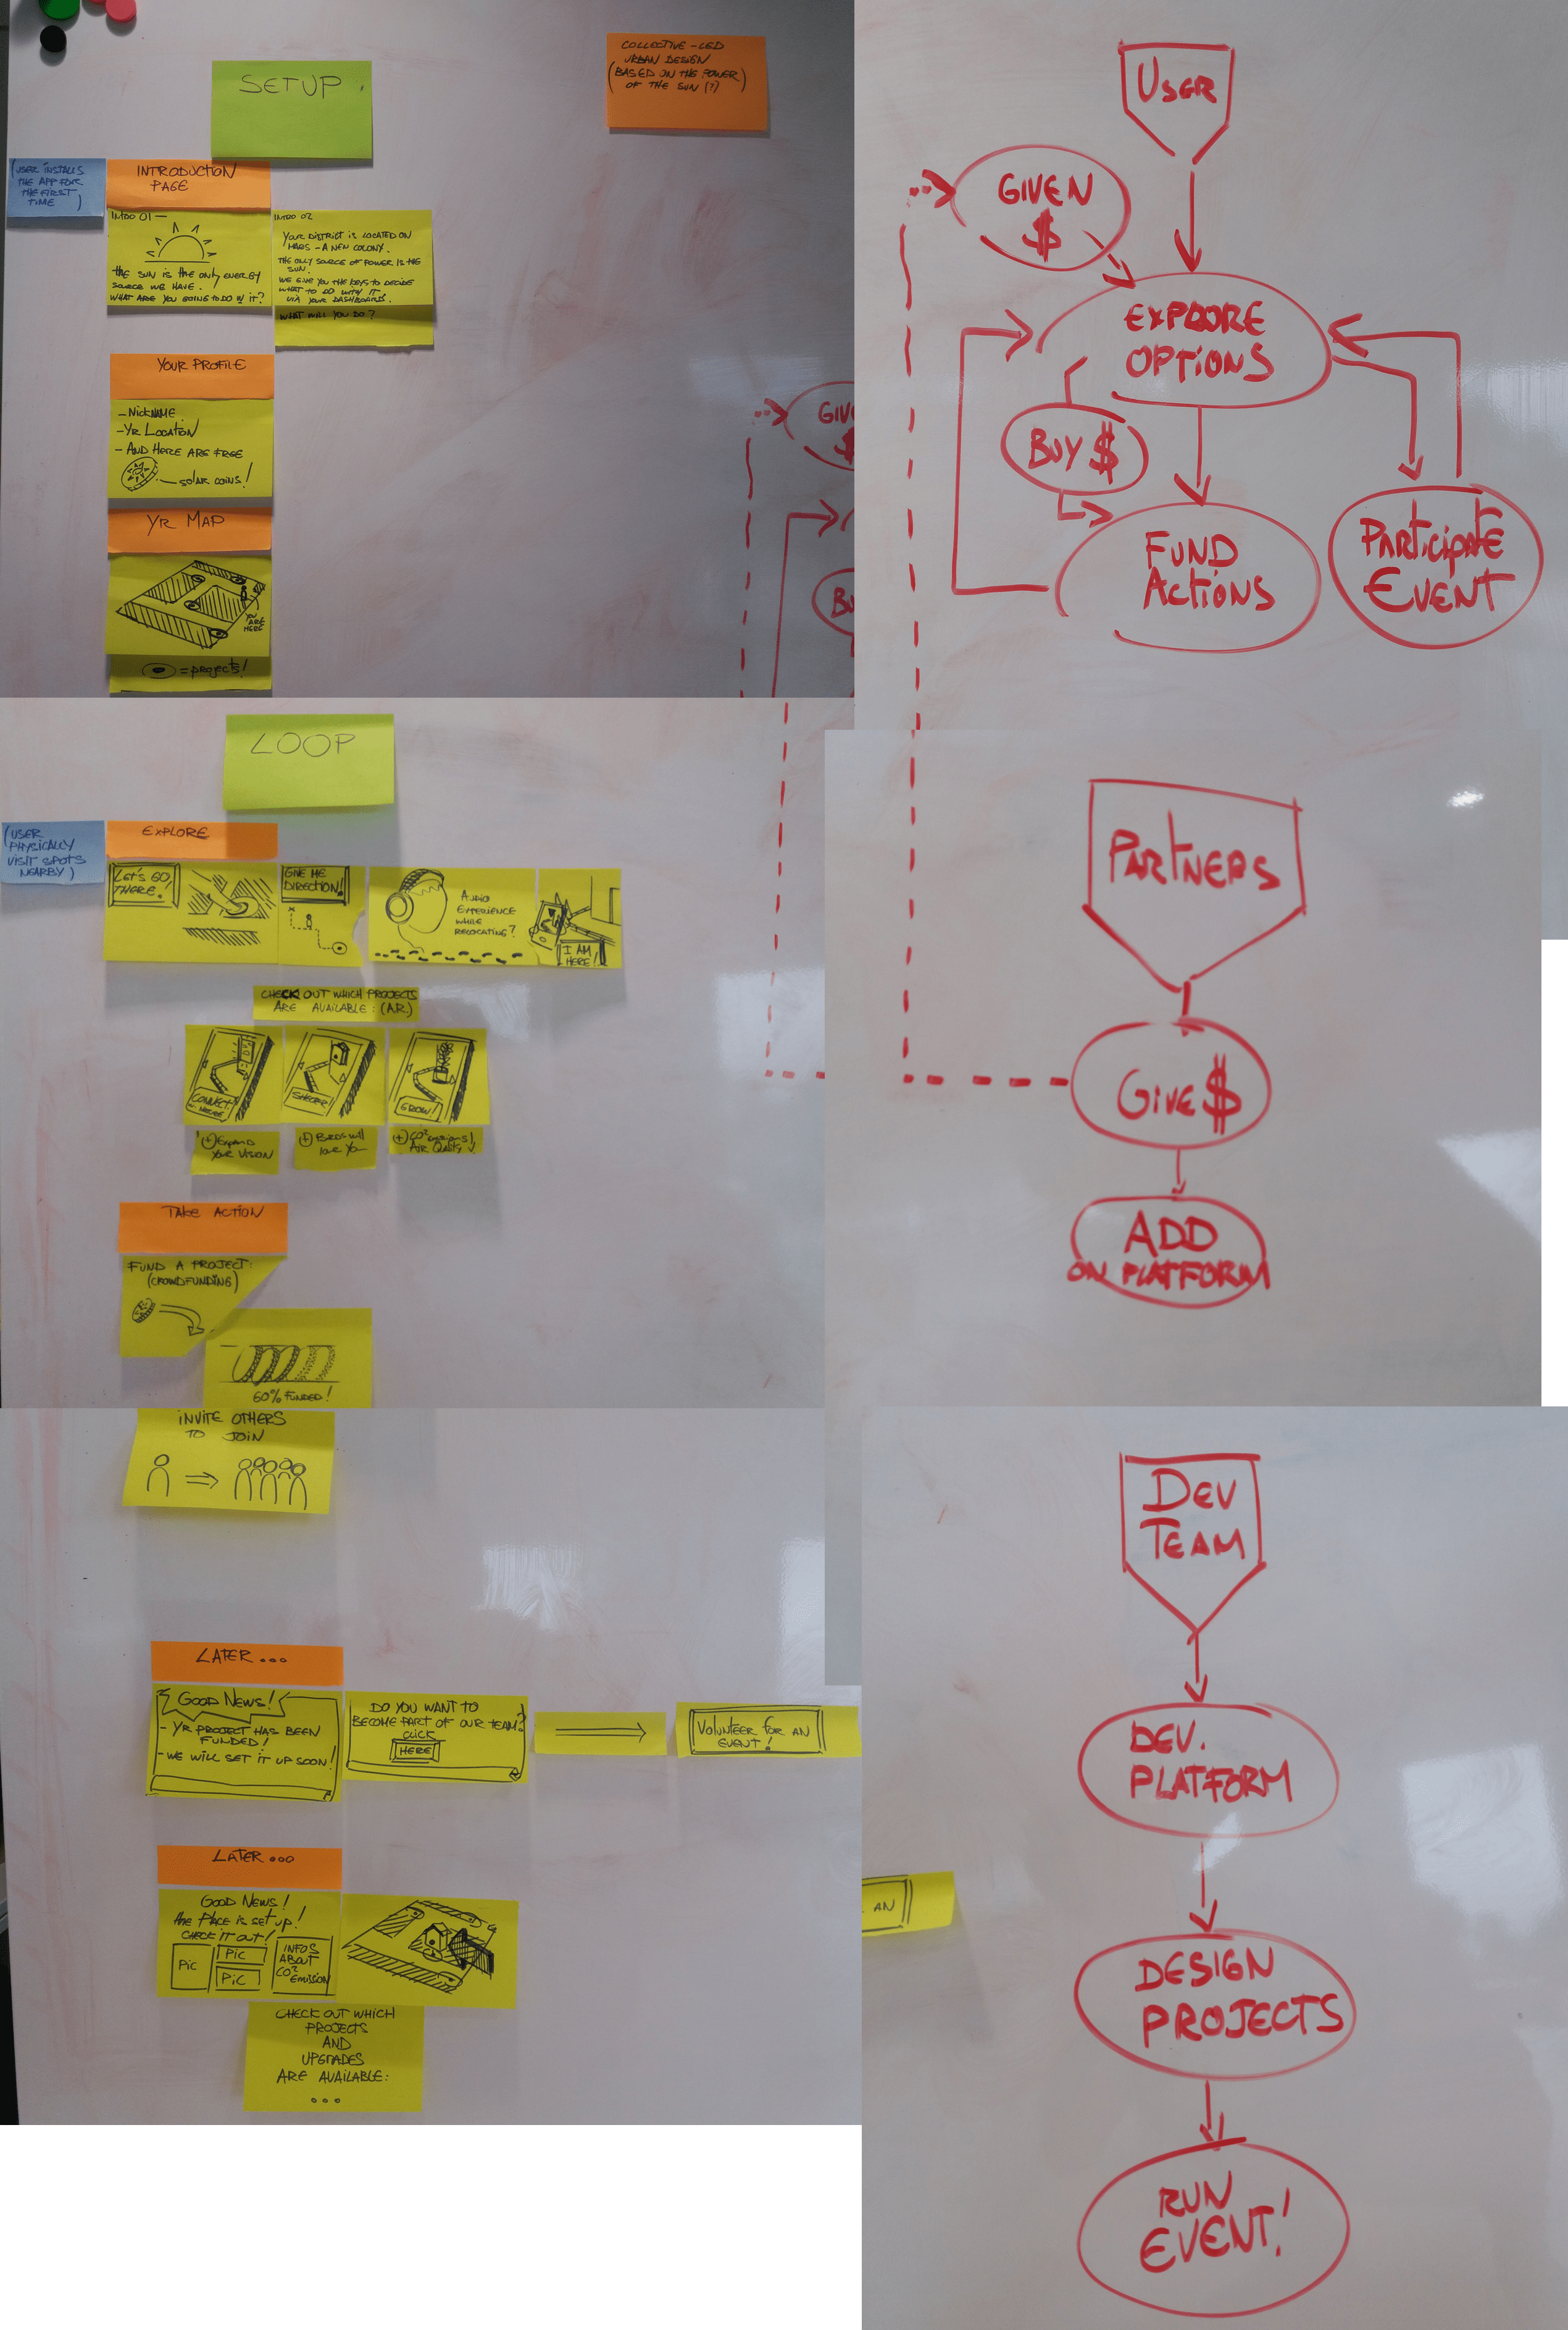 SETUP
COLLECTIVE-LED
URBAN DESIGN
(BASED ON THE POWER
OF THE SUN (?))
(USER INSTALLS
THE APP FOR
THE FIRST
TIME)
INTRODUCTION
PAGE
INTRO 01 —
THE SUN IS THE ONLY ENERGY
SOURCE WE HAVE.
WHAT ARE YOU GOING TO DO W IT?
INTRO 02
YOUR DISTRICT IS LOCATED ON
MARS - A NEW COLONY.
THE ONLY SOURCE OF POWER IS THE
SUN.
WE GIVE YOU THE KEYS TO DECIDE
WHAT TO DO WITH IT
VIA YOUR DASHBOARDS.
WHAT WILL YOU DO?
YOUR PROFILE
- NICKNAME
- YR LOCATION
- AND HERE ARE FREE
SOLAR COINS!
YR MAP
YOU
ARE
HERE
= PROJECTS!
GIV
$
BU
USER
GIVEN
$
EXPLORE
OPTIONS
BUY $
FUND
ACTIONS
PARTICIPATE
EVENT
LOOP
(USER
PHYSICALLY
VISIT SPOTS
NEARBY)
EXPLORE
LET'S GO
THERE!
GIVE ME
DIRECTION!
AUDIO
EXPERIENCE
WHILE
RELOCATING?
I AM
HERE!
CHECK OUT WHICH PROJECTS
ARE AVAILABLE: (A.R.)
CONNECT
HERE
SHELTER!
GROW!
(+) EXPAND
YOUR VISION
(+) BIRDS WILL
LOVE YOU
(+) CO² EMISSIONS!
AIR QUALITY
TAKE ACTION
FUND A PROJECT:
(CROWDFUNDING)
60% FUNDED!
PARTNERS
GIVE $
ADD
ON PLATFORM
INVITE OTHERS
TO JOIN
LATER...
GOOD NEWS!
- YR PROJECT HAS BEEN
FUNDED!
- WE WILL SET IT UP SOON!
DO YOU WANT TO
BECOME PART OF OUR TEAM?
CLICK
HERE
VOLUNTEER FOR AN
EVENT!
LATER...
GOOD NEWS!
THE PLACE IS SET UP!
CHECK IT OUT!
PIC
PIC
PIC
INFOS
ABOUT
CO²
EMISSION
CHECK OUT WHICH
PROJECTS
AND
UPGRADES
ARE AVAILABLE:
...
DEV
TEAM
DEV.
PLATFORM
AN
DESIGN
PROJECTS
RUN
EVENT!